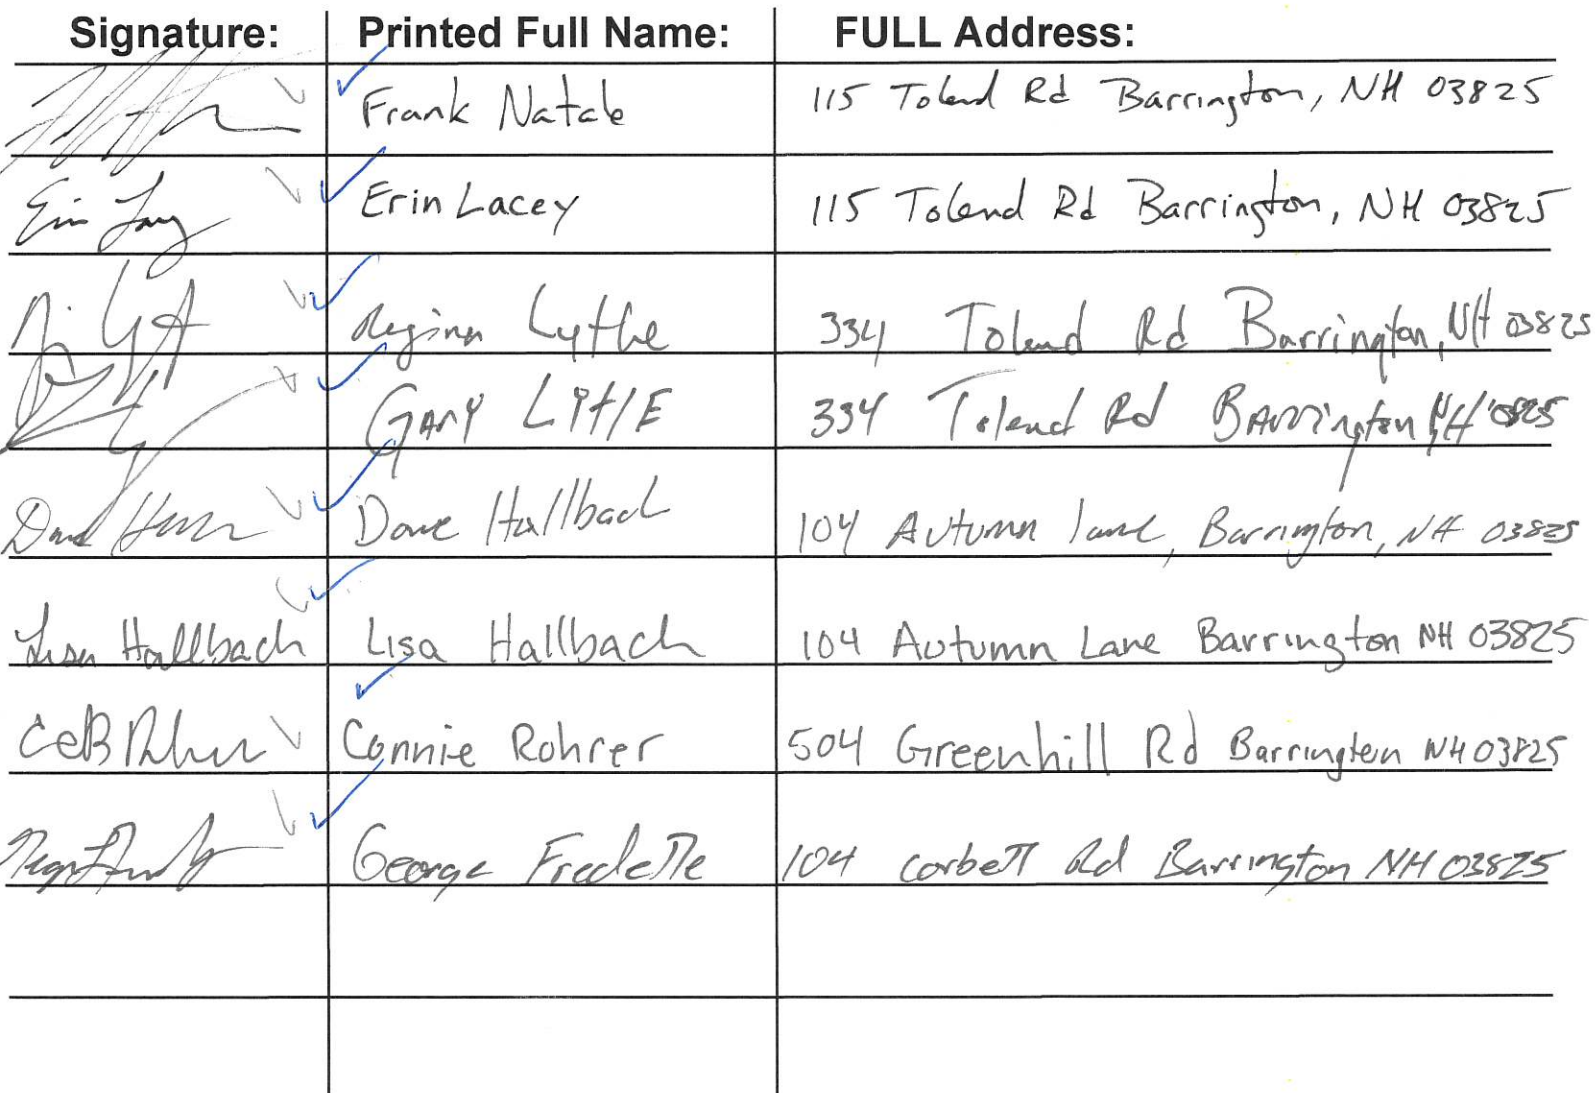 Signature: Printed Full Name: FULL Address:
Frank Natale 115 Tolend Rd Barrington, NH 03825
Erin Lacey Erin Lacey 115 Tolend Rd Barrington, NH 03825
Regina Lytle 334 Tolend Rd Barrington, NH 03825
GARY LittlE 334 Tolend Rd BArrington NH 03825
Dave Hallbach 104 Autumn lane, Barrington, NH 03825
Lisa Hallbach Lisa Hallbach 104 Autumn Lane Barrington NH 03825
Connie Rohrer 504 Greenhill Rd Barrington NH 03825
George Fredette 104 Corbett Rd Barrington NH 03825